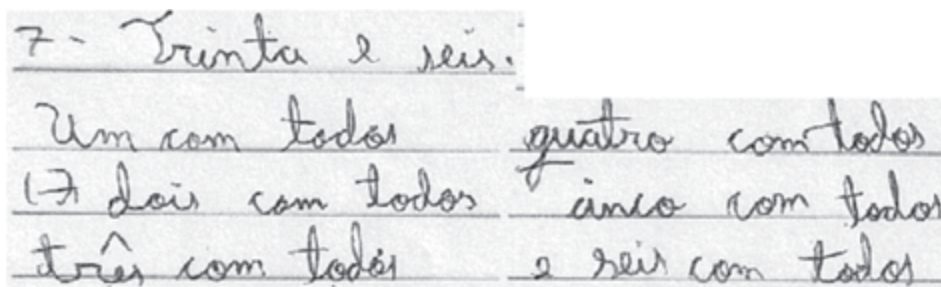 7- Trinta e seis.
Um com todos
(7) dois com todos
três com todos
quatro com todos
cinco com todos
e seis com todos